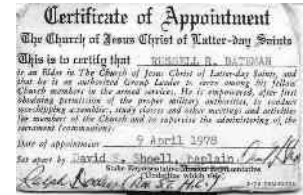 Certificate of Appointment
The Church of Jesus Christ of Latter-day Saints
This is to certify that RUSSELL R. BATEMAN
is an Elder in The Church of Jesus Christ of Latter-day Saints, and
that he is an authorized Group Leader to serve among his fellow
Church members in the armed services. He is empowered, after first
obtaining permission of the proper military authorities, to conduct
worshipping assemblies, study classes and other meetings and activities
for members of the Church and to supervise the administering of the
sacrament (communion).
Date of appointment 9 April 1978
Set apart by David S. Shoell, haplain
Stake Representative
Ralph